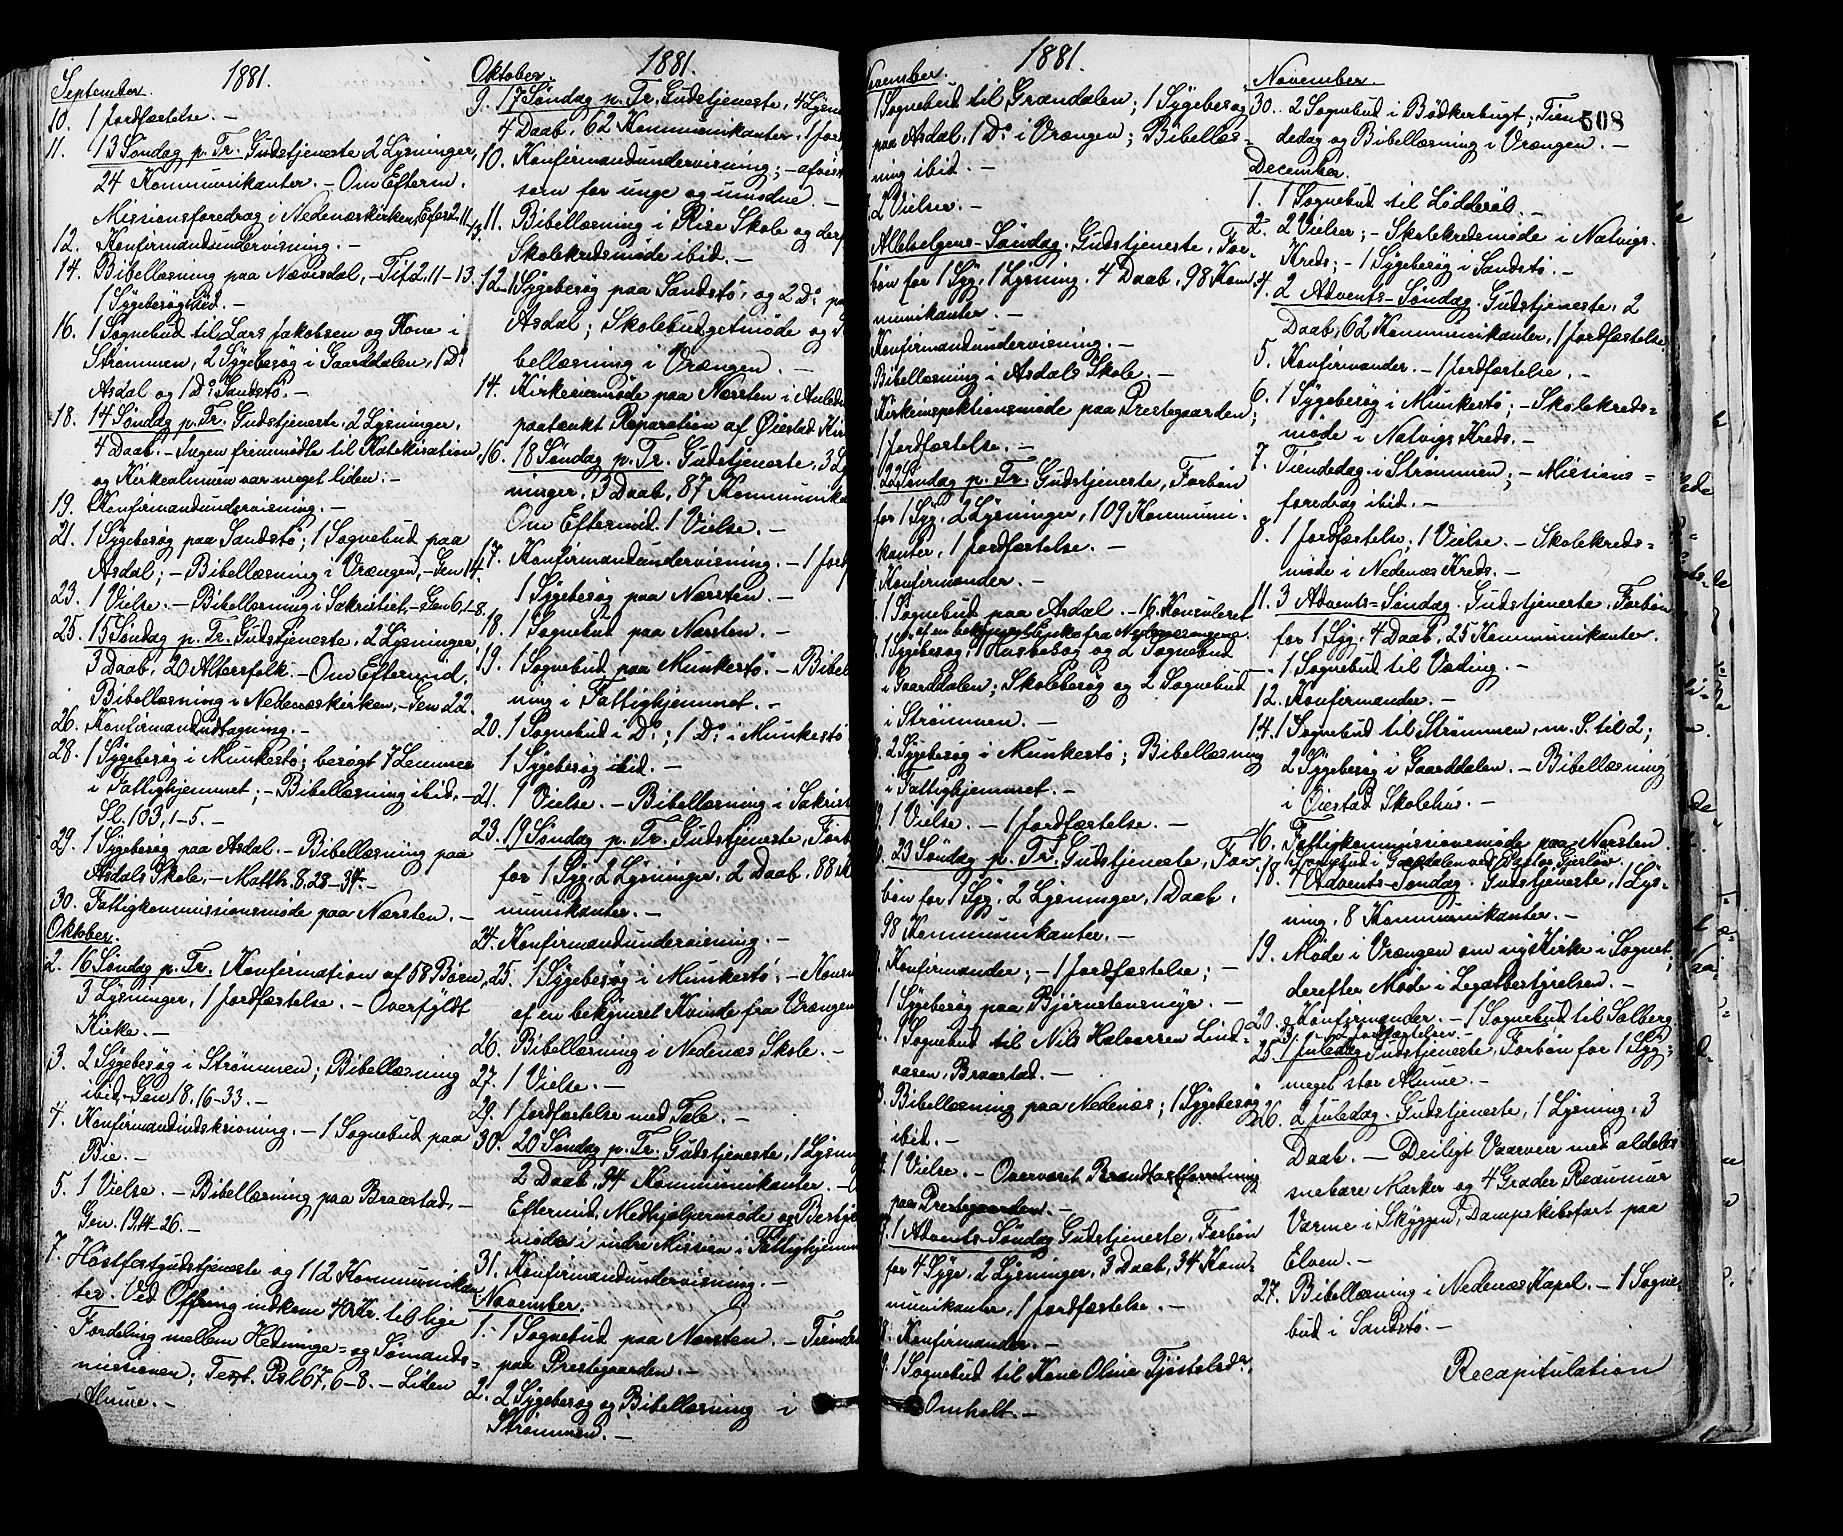 1881.
September.
10. 1 Jordfæstelse. –
11. 13 Søndag p. Tr. Gudstjeneste 2 Lysninger,
24 Kommunikanter. – Om Efterm.
Missionsforedrag i Nedenæskirken, Efes. 2. 11
12. Konfirmandundervisning. –
14. Bibellæsning paa Nævisdal, – Tit. 2. 11–13.
1 Sygebesøg ibid. –
16. 1 Sognebud til Lars Jakobsen og Kone i
Strømmen, 2 Sygebesøg i Gaarddalen, 1 Do
Asdal og 1 Do Sandstø. –
18. 14 Søndag p. Tr. Gudstjeneste, 2 Lysninger,
4 Daab. – Ingen fremmødte til Katekisation,
og Kirkealmuen var meget liden. –
19. Konfirmandundervisning. –
21. 1 Sygebesøg paa Sandstø; 1 Sognebud paa
Asdal; – Bibellæsning i Vrængen, – Gen 14.
23. 1 Vielse. – Bibellæsning i Sakristiet, – Gen 6, 1–8.
25. 15 Søndag p. Tr. Gudstjeneste, 2 Lysninger,
3 Daab, 20 Altersfolk. – Om Eftermid.
Bibellæsning i Nedenæskirken, – Gen 22.
26. Konfirmandudtagning. –
28. 1 Sygebesøg i Munkestø; besøgt 7 Lemmer
i Fattighjemmet; – Bibellæsning ibid. –
Sl. 103, 1–5. –
29. 1 Sygebesøg paa Asdal. – Bibellæsning paa
Asdals Skole, – Matth. 8. 23–34. –
30. Fattigkommissionsmøde paa Næsten. –
Oktober.
2. 16 Søndag p. Tr. Konfirmation af 58 Børn,
3 Lysninger, 1 Jordfæstelse. – Overfyldt
Kirke. –
3. 2 Sygebesøg i Strømmen; Bibellæsning
ibid, Gen 18. 16–33. –
4. Konfirmandindskrivning. – 1 Sognebud paa
Bie. –
5. 1 Vielse. – Bibellæsning paa Braastad, –
Gen. 19, 4–26. –
7. Høstfestgudstjeneste og 112 Kommunikan
ter. Ved Offring indkom 40 Kr. til lige
Fordeling mellem Hedninge- og Sømands-
missionen; Text. Psl 67, 6–8. – Liden
Almue. –
1881.
Oktober.
9. 17 Søndag p. Tr. Gudstjeneste, 4 Lysn
4 Daab, 62 Kommunikanter, 1 Jor
10. Konfirmandundervisning; – afvist
som for unge og umodne. –
11. Bibellæsning i Rise Skole og der
Skolekredsmøde ibid. –
12. 1 Sygebesøg paa Sandstø, og 2 Do paa
Asdal; Skolebudgetmøde og
bellæsning i Vrængen. –
14. Kirkeviermøde paa Næsten i Anled
paatænkt Reparation af Øiestad Kir
16. 18 Søndag p. Tr. Gudstjeneste, 3 Ly
ninger, 3 Daab, 87 Kommunika
Om Eftermid. 1 Vielse. –
17. Konfirmandundervisning. – 1 Jord
1 Sygebesøg paa Næsten. –
18. 1 Sognebud paa Næsten. –
19. 1 Sognebud paa Munkestø. – Bibel
ning i Fattighjemmet. –
20. 1 Sognebud i Do; 1 Do i Munkestø
1 Sygebesøg ibid. –
21. 1 Vielse. – Bibellæsning i Sakrist
23. 19 Søndag p. Tr. Gudstjeneste, Forb
for 1 Syg, 2 Lysninger, 2 Daab, 88 K
munikanter. –
24. Konfirmandundervisning. –
25. 1 Sygebesøg i Munkestø. – Konsu
af en bekymret Kvinde fra Vrængen
26. Bibellæsning i Nedenæs Skole. –
27. 1 Vielse. –
29. 1 Jordfæstelse med Tale. –
30. 20 Søndag p. Tr. Gudstjeneste, 1 Lysn
2 Daab, 94 Kommunikanter. –
Eftermid. Medhjælpermøde og Besty
møde i indre Mission i Fattighjemm
31. Konfirmandundervisning. –
November.
1. 1 Sognebud paa Næsten. – Tiende
paa Prestegaarden. –
2. 2 Sygebesøg og Bibellæsning i
Strømmen. –
1881.
November.
1 Sognebud til Grændalen; 1 Sygebesøg
paa Asdal, 1 Do i Vrængen; Bibellæs-
ning ibid. –
2 Vielser. –
Allehelgens-Søndag. Gudstjeneste, For-
bøn for 1 Syg, 1 Lysning, 4 Daab, 98 Kom
munikanter. –
Konfirmandundervisning. –
Bibellæsning i Asdals Skole. –
Kirkeinspektionsmøde paa Prestegaarden;
1 Jordfæstelse. –
22 Søndag p. Tr. Gudstjeneste, Forbøn
for 1 Syg, 2 Lysninger, 109 Kommuni-
kanter, 1 Jordfæstelse. –
Konfirmander. –
1 Sognebud paa Asdal. – 16. Konsuleret
af en bekymret
1 Sygebesøg, 1 Husbesøg og 2 Sognebud
i Gaarddalen; Skolebesøg og 2 Sognebud
i Strømmen. –
2 Sygebesøg i Munkestø; Bibellæsning
i Fattighjemmet. –
1 Vielse. – 1 Jordfæstelse. –
23 Søndag p. Tr. Gudstjeneste, For
bøn for 1 Syg, 2 Lysninger, 1 Daab,
98 Kommunikanter. –
Konfirmander; – 1 Jordfæstelse; –
1 Sygebesøg paa Bjørnstensmyr. –
1 Sognebud til Nils Halvorsen Lind-
aasen, Braastad. –
Bibellæsning paa Nedenæs; 1 Sygebesøg
ibid. –
1 Vielse. – Overværet
paa Prestegaarden. –
1 Advents-Søndag Gudstjeneste, Forbøn
for 4 Syge, 2 Lysninger, 3 Daab, 34 Kom-
munikanter, 1 Jordfæstelse. –
Konfirmander. –
1 Sognebud til Kone Oline Tjøstelsdr,
Omholt. –
508
November.
30. 2 Sognebud i Bødkerbugt; Tien
dedag og Bibellæsning i Vrængen. –
December.
1. 1 Sognebud til Løddesøl. –
2. 2 Vielser; – Skolekredsmøde i Natvigs
Kreds; – 1 Sygebesøg i Sandstø. –
4. 2 Advents-Søndag. Gudstjeneste, 2
Daab, 62 Kommunikanter, 1 Jordfæstelse.
5. Konfirmander. – 1 Jordfæstelse. –
6. 1 Sygebesøg i Munkestø; – Skolekreds-
møde i Natvigs Kreds. –
7. Tiendedag i Strømmen; – Missions-
foredrag ibid. –
8. 1 Jordfæstelse; 1 Vielse. – Skolekreds-
møde i Nedenæs Kreds. –
11. 3 Advents-Søndag. Gudstjeneste, Forbøn
for 1 Syg, 4 Daab, 25 Kommunikanter.
– 1 Sognebud til Væding. –
12. Konfirmander. –
14. 1 Sognebud til Strømmen, m. S. til 2;
2 Sygebesøg i Gaarddalen. – Bibellæsning
i Øiestad Skolehus. –
16. Fattigkommissionsmøde paa Næsten.
1 Sognebud i Gaarddalen ved Pastor Gjerløw.
18. 4 Advents-Søndag. Gudstjeneste, 1 Lys-
ning, 8 Kommunikanter. –
19. Møde i Vrængen om ny Kirke i Sognet;
derefter Møde i Legatbestyrelsen. –
20. Konfirmander. – 1 Sognebud til Solberg.
2 Jordfæstelser. –
25. 1 Juledag Gudstjeneste, Forbøn for 1 Syg;
meget stor Almue. –
26. 2 Juledag. Gudstjeneste, 1 Lysning, 3
Daab. – Deiligt Vaarveir med aldeles
snebare Marker og 4 Grader Reaumur
Varme i Skyggen, Dampskibsfart paa
Elven. –
27. Bibellæsning i Nedenæs Kapel. – 1 Sogne-
bud i Sandstø. –
Recapitulation